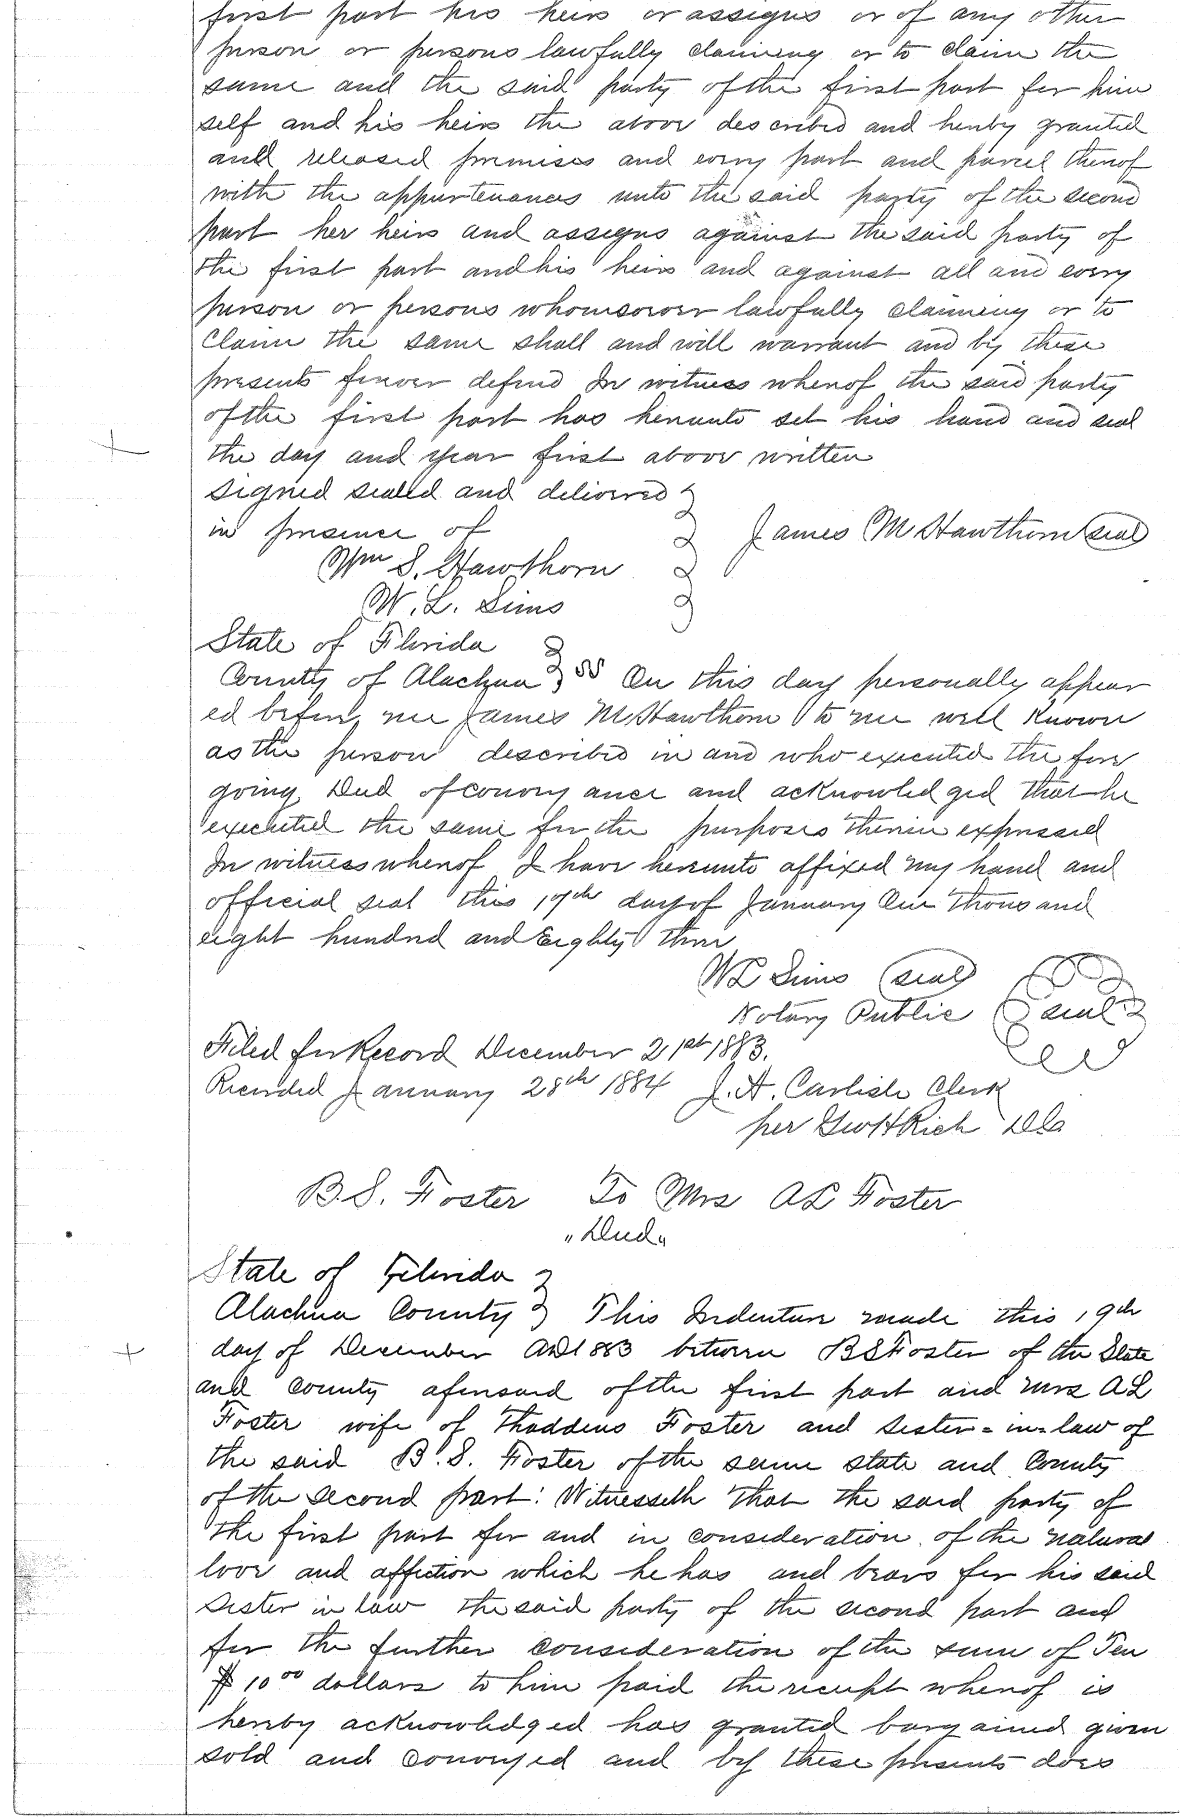 first part his heirs or assigns or of any other
person or persons lawfully claiming or to claim the
same and the said party of the first part for him
self and his heirs the above described and hereby granted
and released premises and every part and parcel thereof
with the appurtenances unto the said party of the second
part her heirs and assigns against the said party of
the first part and his heirs and against all and every
person or persons whomsoever lawfully claiming or to
claim the same shall and will warrant and by these
presents forever defend In witness whereof the said party
of the first part has hereunto set his hand and seal
the day and year first above written
signed sealed and delivered
in presence of James M Hawthorn seal
Wm S. Hawthorn
W. L. Sims
State of Florida
County of Alachua ss On this day personally appear
ed before me James M Hawthorn to me well known
as the person described in and who executed the fore
going Deed of convey ance and acknowledged that he
executed the same for the purposes therein expressed
In witness whereof I have hereunto affixed my hand and
official seal this 17th day of January One thousand
eight hundred and Eighty three
W L Sims seal
Notary Public seal
Filed for Record December 21st 1883.
Recorded January 28th 1884 J. H. Carlisle Clerk
per Geo H Rich DC
B. S. Foster To Mrs A L Foster
"Deed"
State of Florida
Alachua County This Indenture made this 19th
day of December AD 1883 between B S Foster of the State
and County aforesaid of the first part and Mrs A L
Foster wife of Thaddeus Foster and sister=in=law of
the said B. S. Foster of the same state and County
of the second part: Witnesseth that the said party of
the first part for and in consideration of the natural
love and affection which he has and bears for his said
sister in law the said party of the second part and
for the further consideration of the sum of Ten
$10 00 dollars to him paid the receipt whereof is
hereby acknowledged has granted bargained given
sold and conveyed and by these presents does